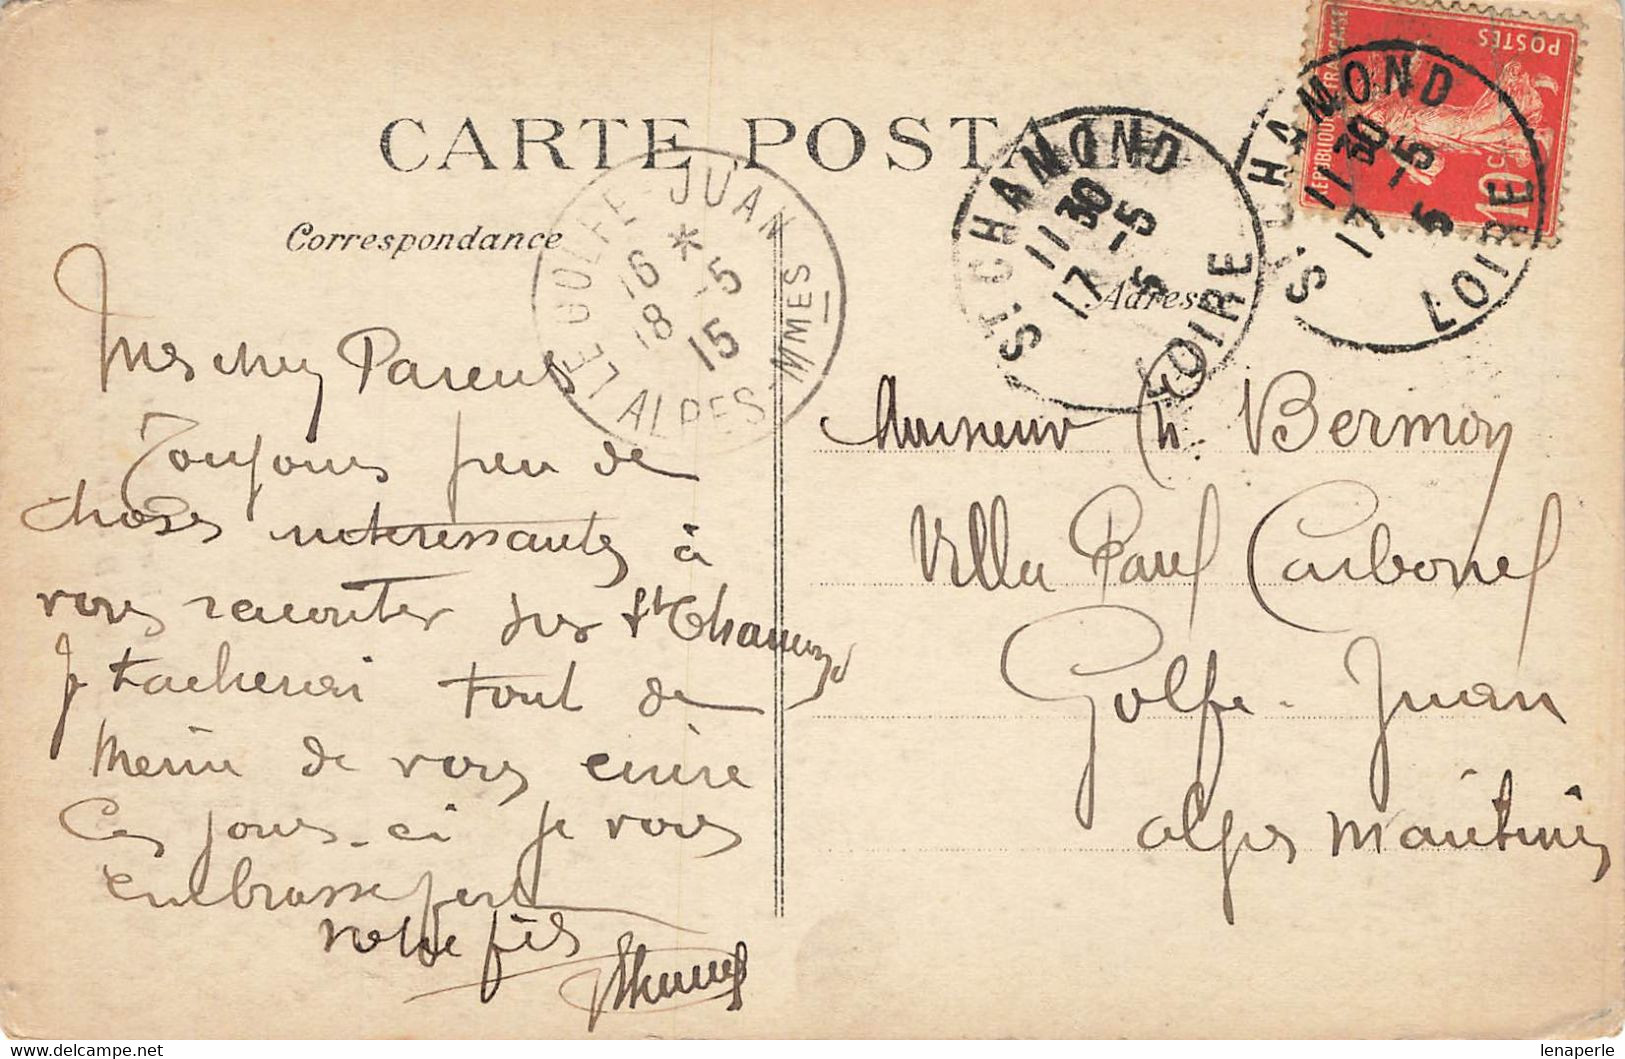 CARTE POSTALE
Correspondance
Adresse
Mes chers Parents
Toujours peu de
choses intéressantes à
vous raconter sur St Chamond
Je tacherai tout de
meme de vous ecrire
Ces jours-ci Je vous
embrasse fort
votre fils
Monsieur Ch. Bermon
Villa Paul Carbonel
Golfe-Juan
Alpes Maritimes
LE GOLFE-JUAN
16 *
18 -5
15
ALPES-MMES
ST. CHAMOND
11 30
17 -5
5
LOIRE
ST. CHAMOND
11 30
17 -5
5
LOIRE
REPUBLIQUE FRANÇAISE
POSTES
10c
lenaperle